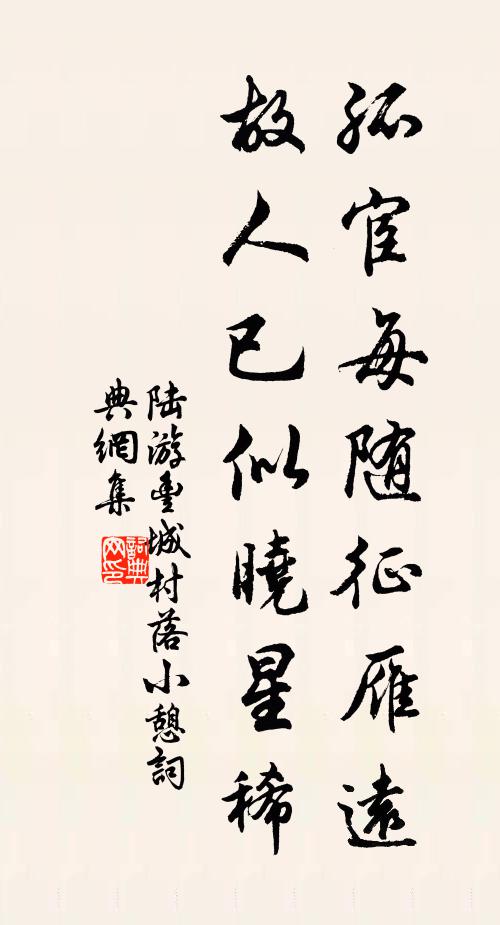 孤宦每随征雁遠
故人已似曉星稀
陆游豊城村落小憩詞
典網集
詞典网印